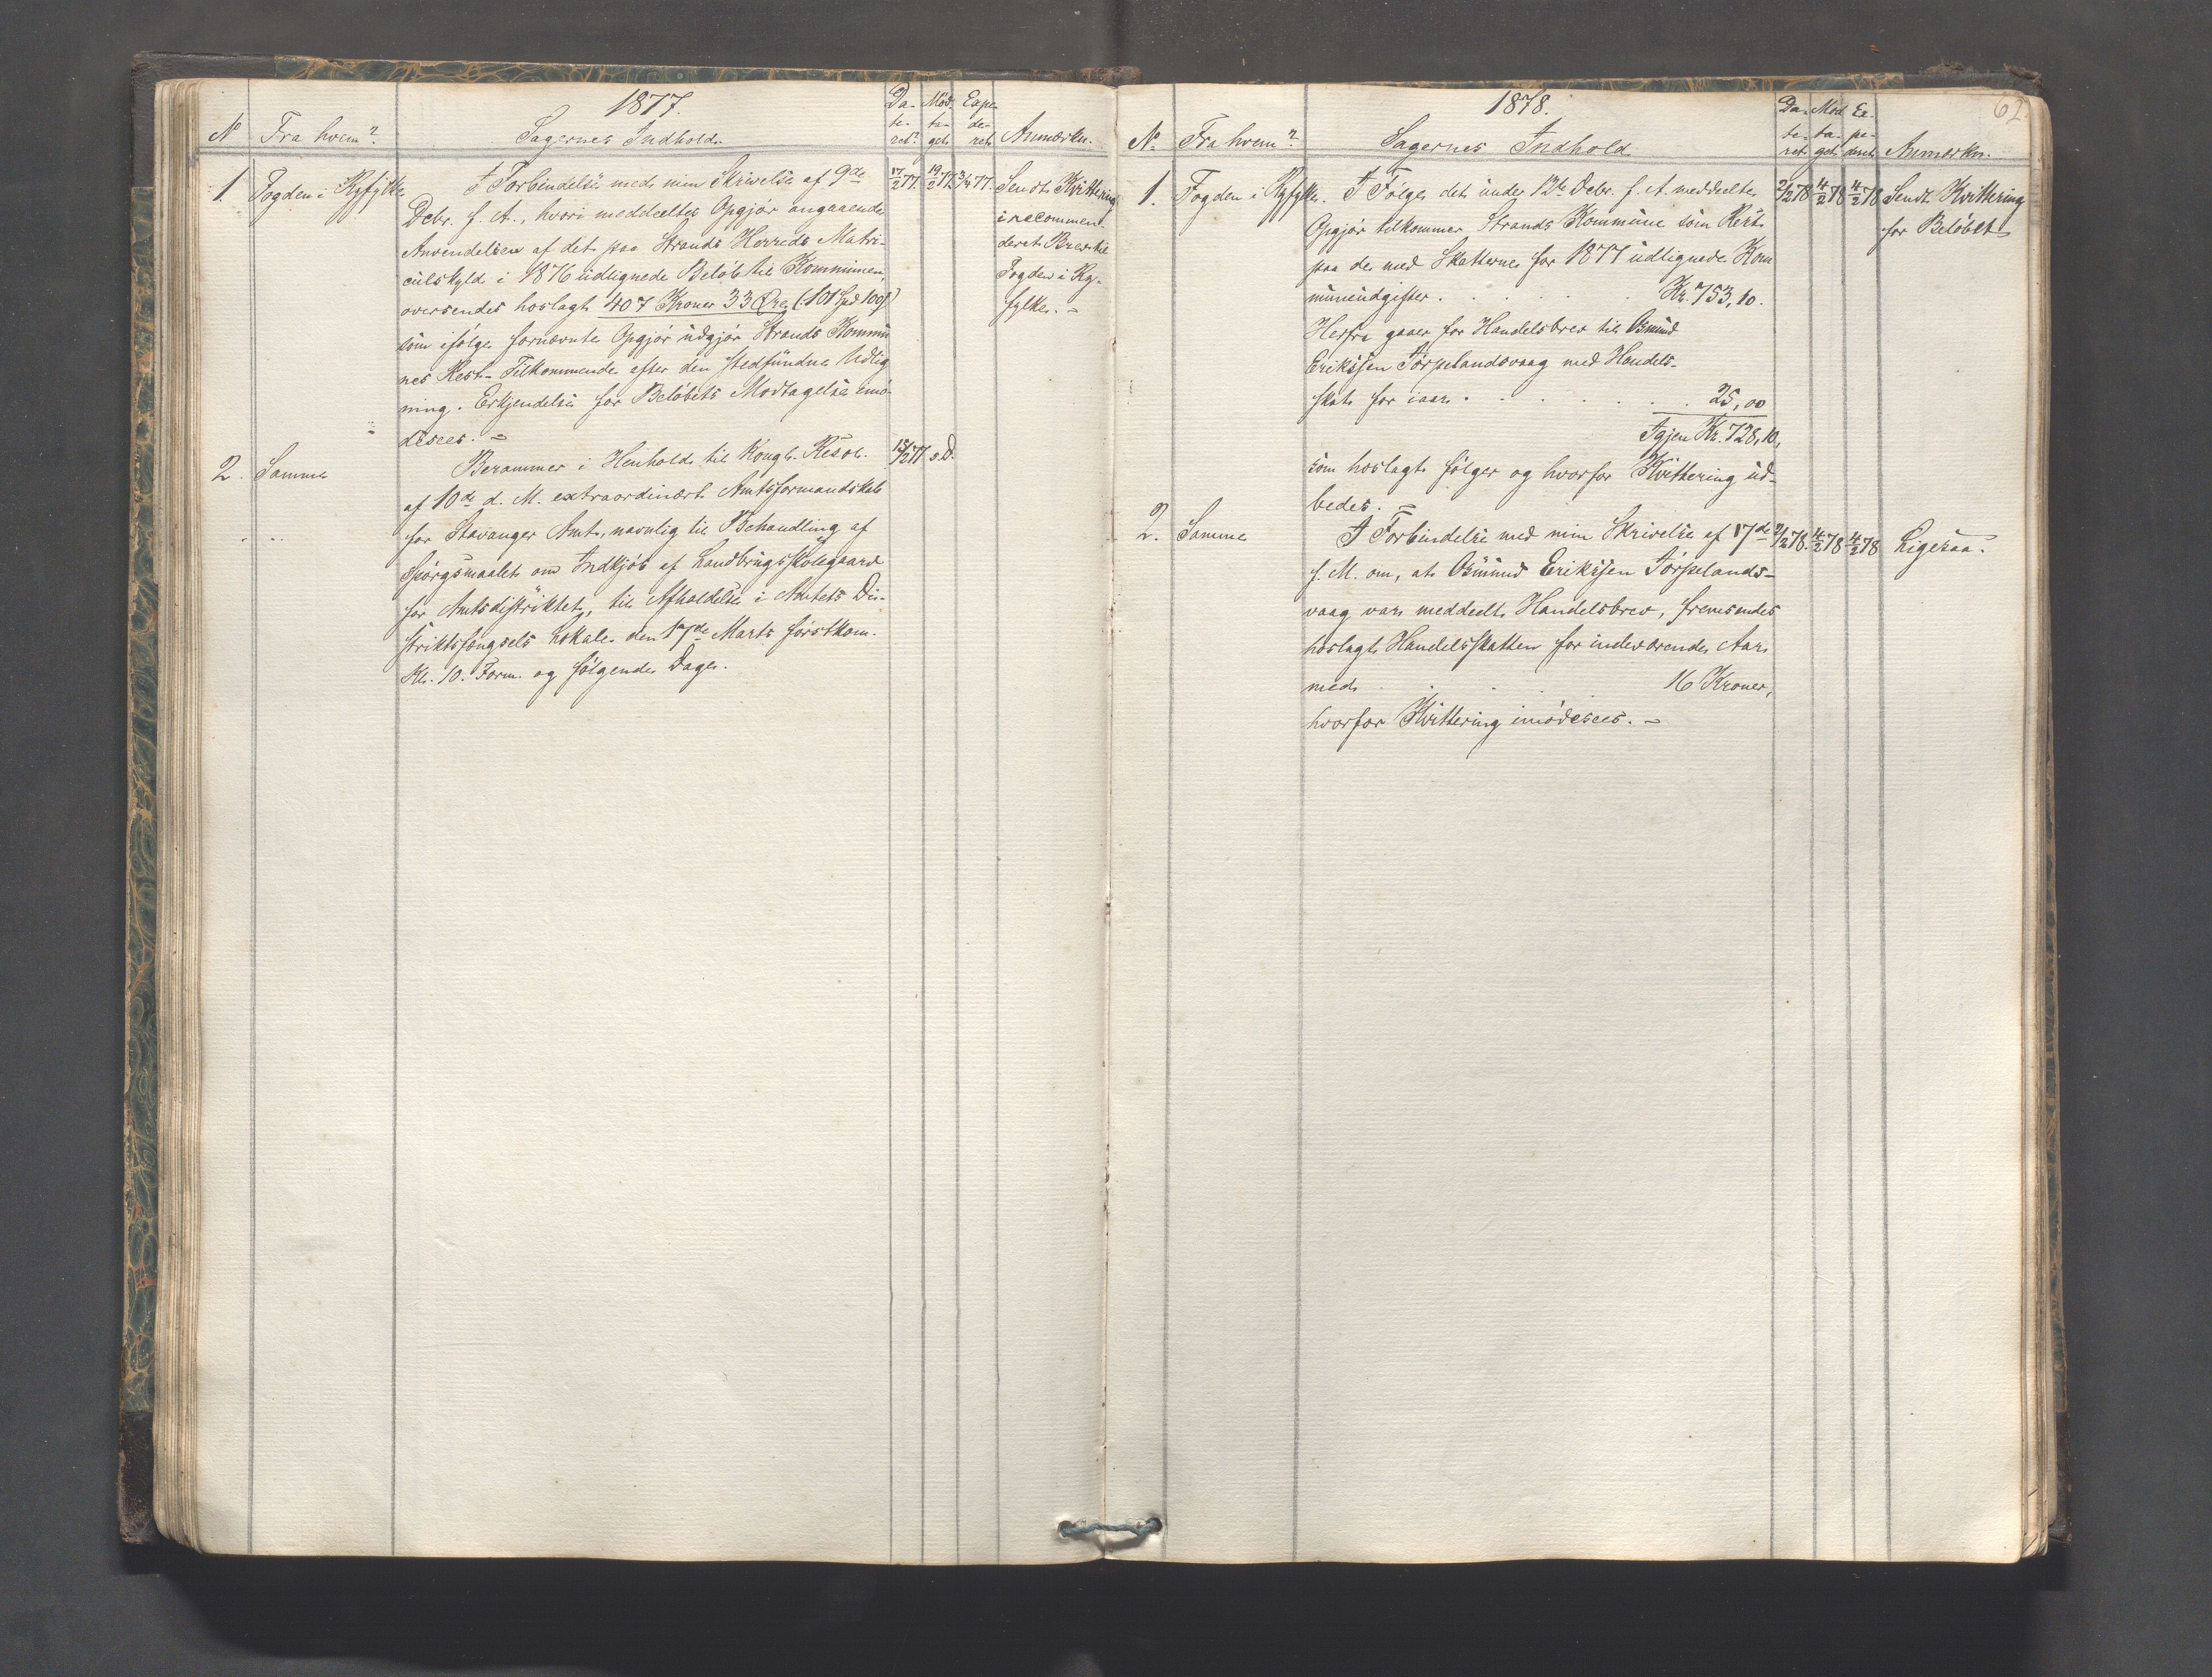 1877.
No Fra hvem? Sagernes Indhold. Da- Mod- Expe-
te- ta- de-
ret? get. ret. Anmærkn.
1. Fogden i Ryfylke I Forbindelse med min Skrivelse af 9de 17/2 77. 19/2 77. 3/4 77. Sendt Kvittering
Debr. f. A., hvori meddeeltes Opgjør angaaende i recommen-
Anvendelsen af det paa Strands Herreds Matri- deret Brev til
culskyld i 1876 udlignede Beløb til Kommunen, Fogden i Ry-
oversendes hoslagt 407 Kroner 33 Øre (101 Spd 100 ß) fylke. -
som ifølge fornævnte Opgjør udgjør Strands Kommu
nes Rest-Tilkommende efter den stedfundne Udlig
ning. Erkjendelse for Beløbets Modtagelse imø-
desees. -
2. Samme Berammer i Henhold til Kongl. Resol. 15/2 77 s. D.
af 10de d. M. extraordinært Amtsformandskab
for Stavanger Amt, navnlig til Behandling af
Spørgsmaalet om Indkjøb af Landbrugsskolegaard
for Amtsdistriktet, til Afholdelse i Amtets Di-
striktsfængsels Lokale den 17de Marts førstkom.
Kl. 10. Form. og følgende Dage.
62
1878.
No Fra hvem? Sagernes Indhold Da- Mod Ex-
te- ta- pe-
ret. get. deret. Anmærkn.
1. Fogden i Ryfylke. I Følge det under 12te Debr. f. A. meddeelte 2/2 78 4/2 78 4/2 78 Sendt Kvittering
Opgjør tilkommer Strands Kommune som Rest for Beløbet
paa de med Skatterne for 1877 udlignede Kom
muneudgifter . . . . . Kr. 753,10.
Herfra gaaer for Handelsbrev til Osmund
Erikssen Tørpelandsvaag med Handels-
skat for iaar . . . . . . 25,00
Igjen Kr. 728,10,
som hoslagt følger og hvorfor Kvittering ud-
bedes. -
2. Samme I Forbindelse med min Skrivelse af 17de 2/2 78. 4/2 78 4/2 78 Ligesaa.
f. M. om, at Osmund Erikssen Tørpelands-
vaag var meddeelt Handelsbrev, fremsendes
hoslagt Handelsskatten for indeværende Aar
med . . . . 16 Kroner,
hvorfor Kvittering imødesees. -